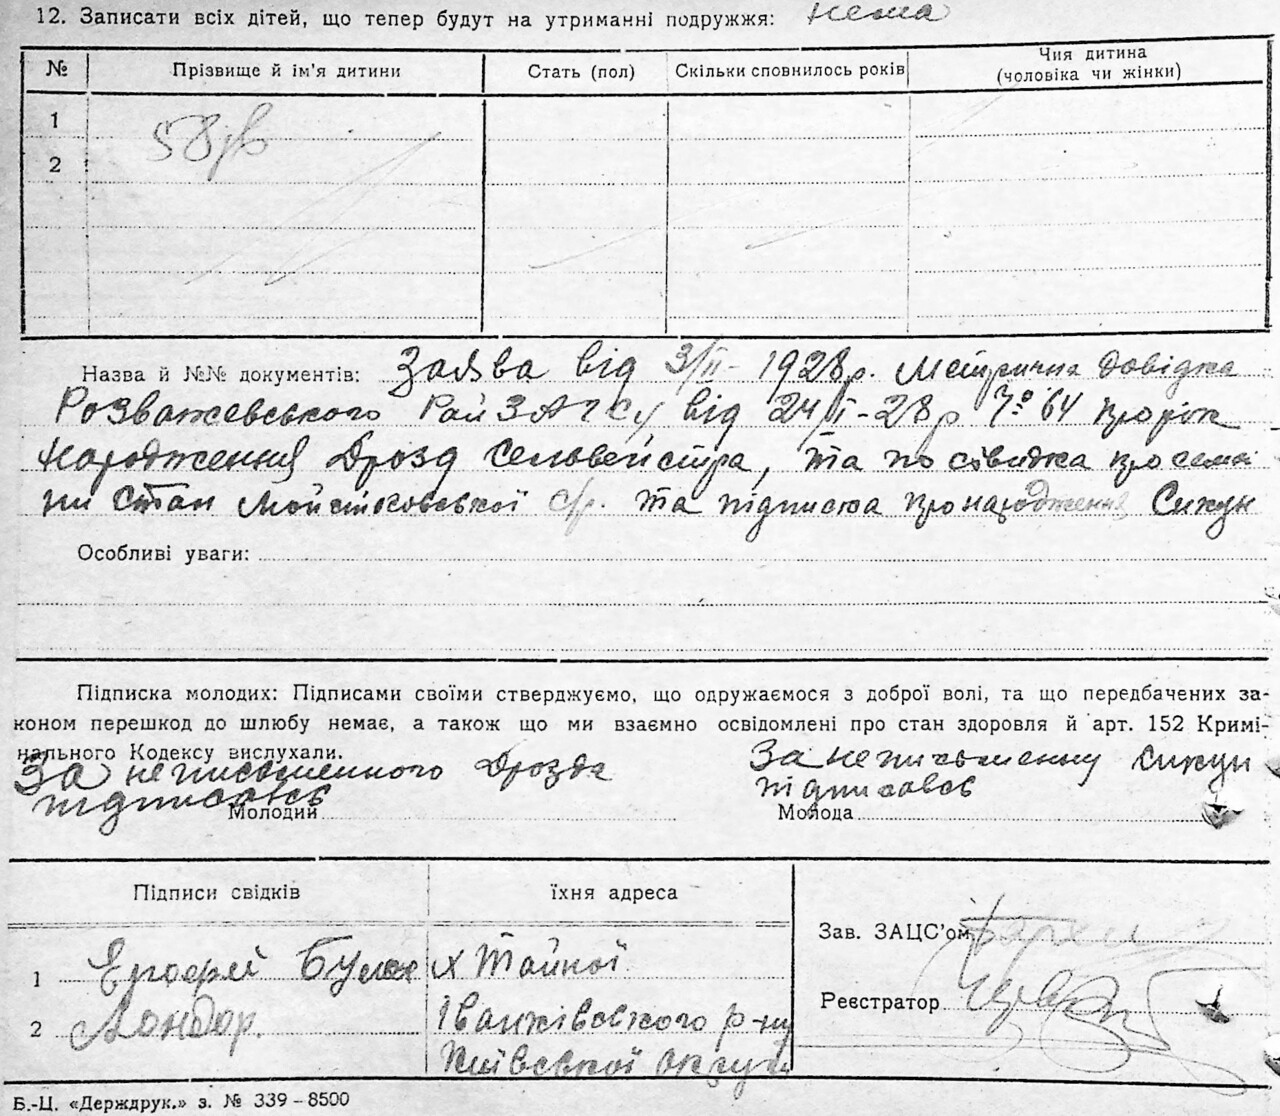 12. Записати всіх дітей, що тепер будут на утриманні подружжя: нема
№ Прізвище й ім'я дитини Стать (пол) Скільки сповнилось років Чия дитина (чоловіка чи жінки)
1
2
Назва й №№ документів: Заява від 3/II- 1928р. Метрична довідка
Розважевського РайЗАГСу від 24/I-28р № 64 про рік
народження Дрозд Сельвейстра, та посвидка про семей
ни стан с/р. та підписка про народження Сикун
Особливі уваги:
Підписка молодих: Підписами своїми стверджуємо, що одружаємося з доброї волі, та що передбачених за-
коном перешкод до шлюбу немає, а також що ми взаємно освідомлені про стан здоровля й арт. 152 Кримі-
нального Кодексу вислухали.
За неписьменного Дрозда За неписьменну Сикун
підписавсь підписавсь
Молодий Молода
Підписи свідків їхня адреса
Зав. ЗАЦС'ом
1 х Тайної
Реєстратор
2 Іванківського р-ну
Київської округи
Б.-Ц. «Держдрук.» з. № 339-8500